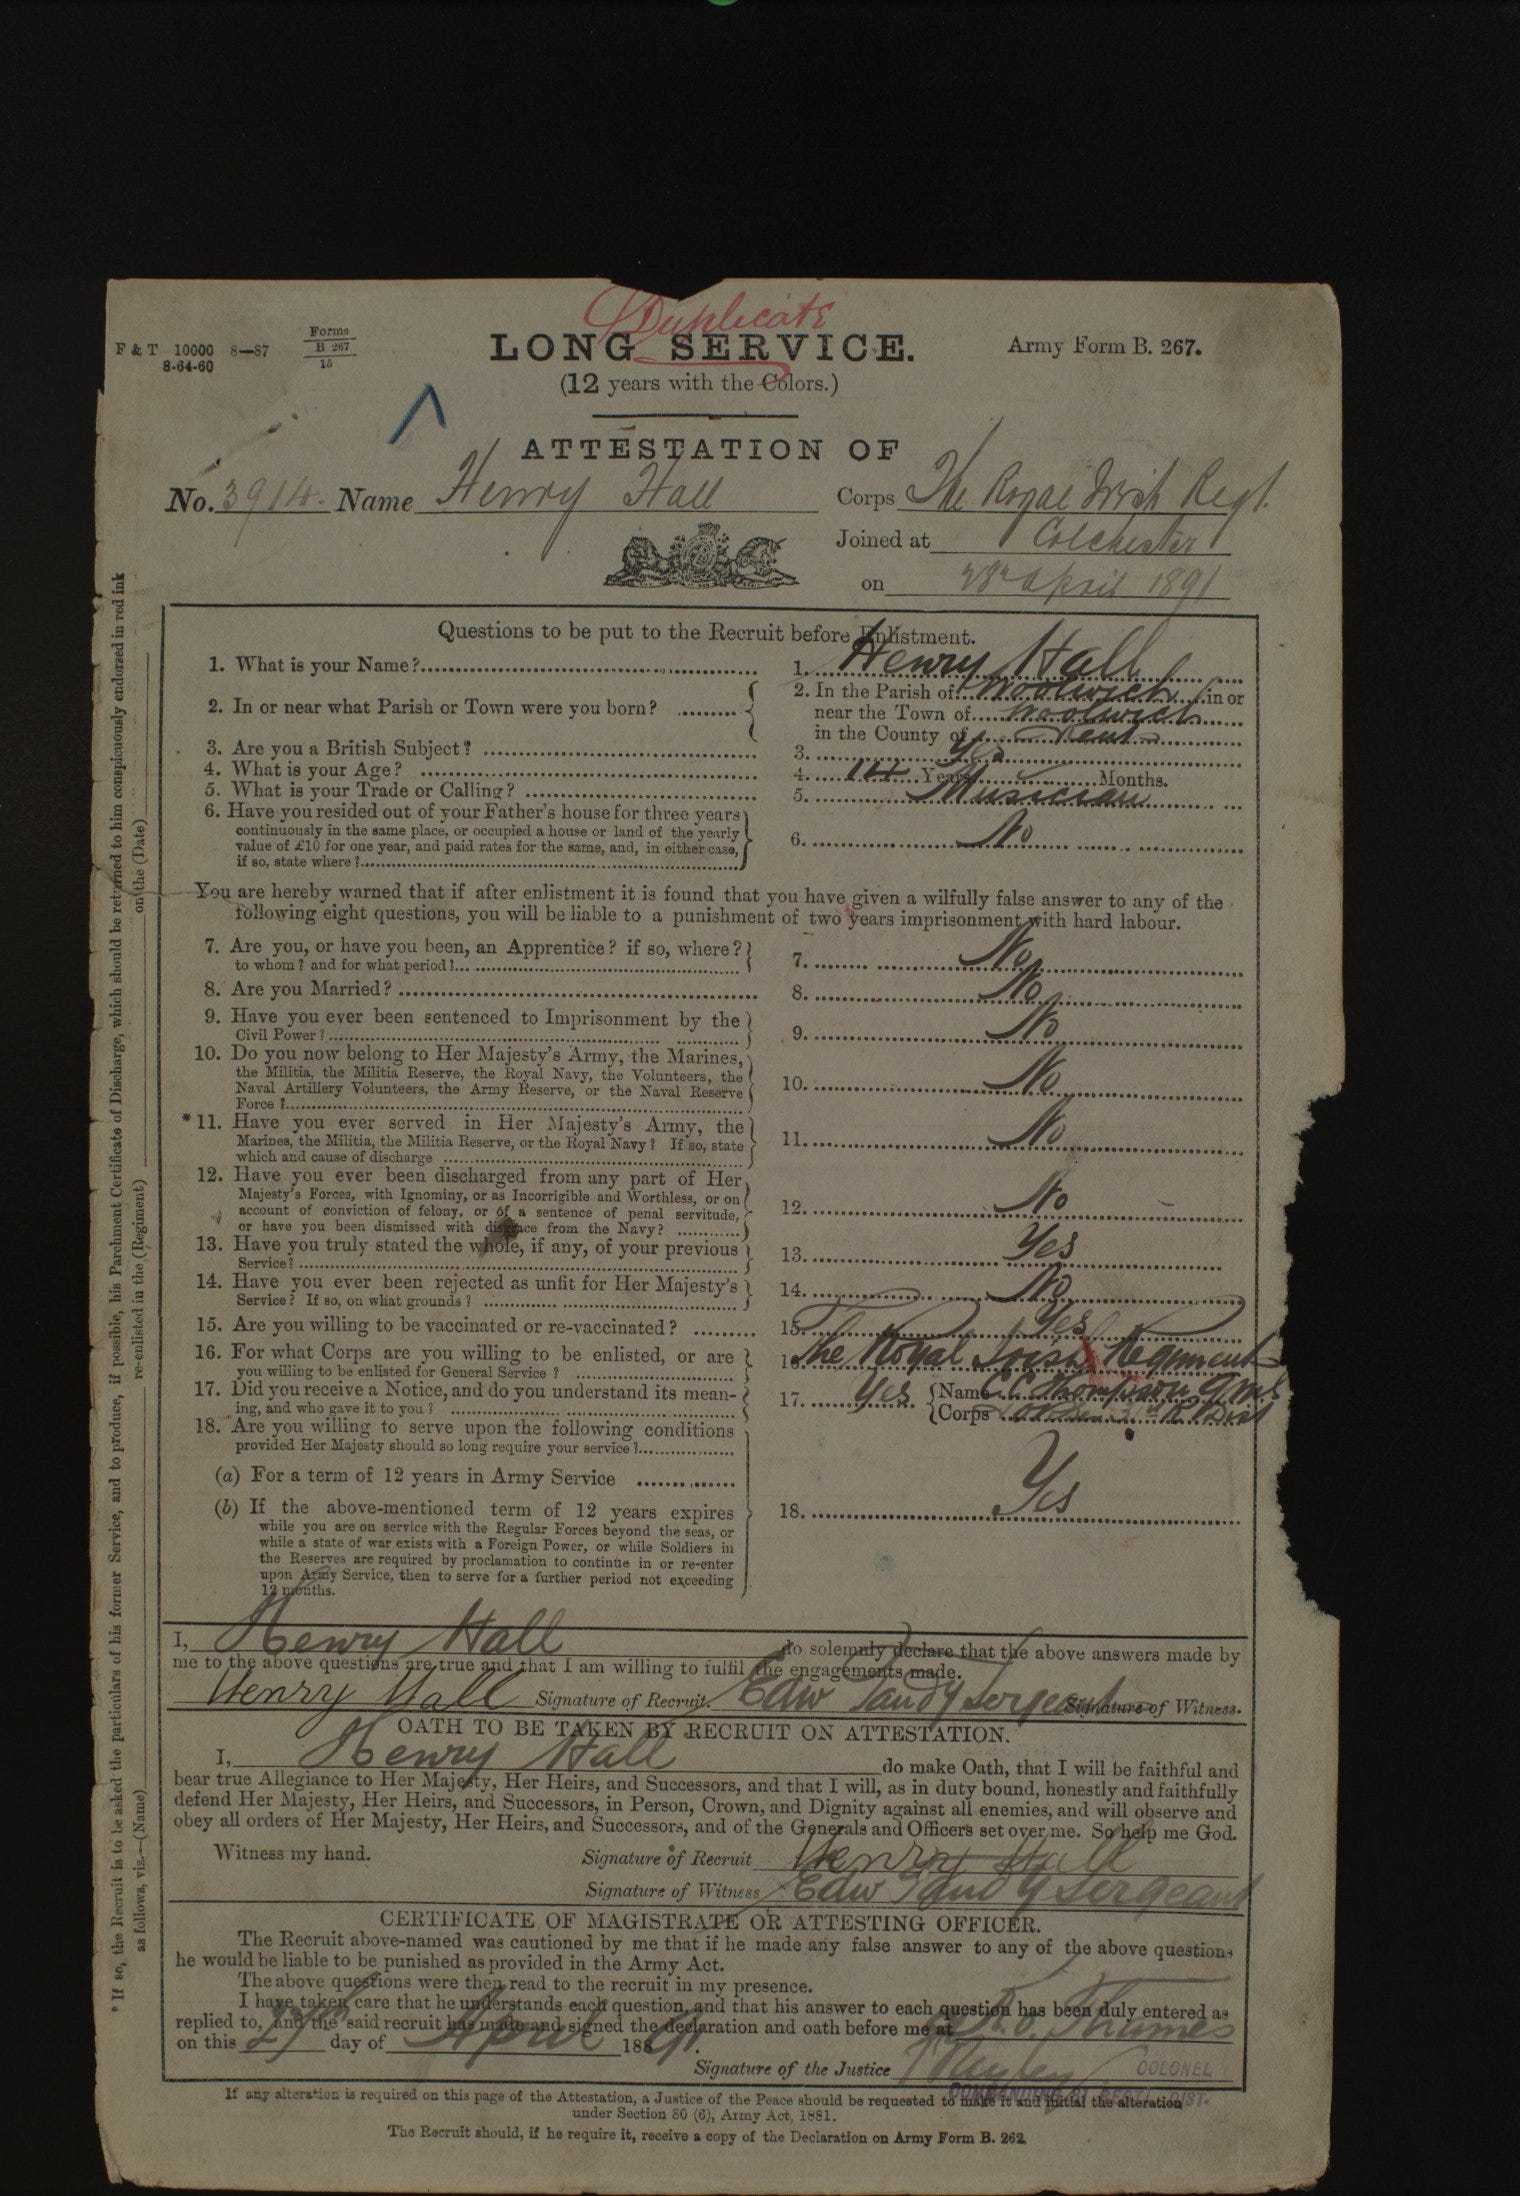 Duplicate
F & T 10000 8—87
8-64-60
Forms
B 267
15
LONG SERVICE.
Army Form B. 267.
(12 years with the Colors.)
ATTESTATION OF
No. 3914. Name Henry Hall Corps The Royal Irish Regt.
Joined at Colchester
on 28th April 1891
Questions to be put to the Recruit before Enlistment.
1. What is your Name? 1. Henry Hall
2. In or near what Parish or Town were you born? 2. In the Parish of Woolwich in or
near the Town of Woolwich
in the County of Kent
3. Are you a British Subject? 3. Yes
4. What is your Age? 4. 14 Years Months.
5. What is your Trade or Calling? 5. Musician
6. Have you resided out of your Father's house for three years
continuously in the same place, or occupied a house or land of the yearly
value of £10 for one year, and paid rates for the same, and, in either case, 6. No
if so, state where?
You are hereby warned that if after enlistment it is found that you have given a wilfully false answer to any of the
following eight questions, you will be liable to a punishment of two years imprisonment with hard labour.
7. Are you, or have you been, an Apprentice? if so, where? 7. No
to whom? and for what period?
8. Are you Married? 8. No
9. Have you ever been sentenced to Imprisonment by the 9. No
Civil Power?
10. Do you now belong to Her Majesty's Army, the Marines,
the Militia, the Militia Reserve, the Royal Navy, the Volunteers, the 10. No
Naval Artillery Volunteers, the Army Reserve, or the Naval Reserve
Force?
* 11. Have you ever served in Her Majesty's Army, the
Marines, the Militia, the Militia Reserve, or the Royal Navy? If so, state 11. No
which and cause of discharge
12. Have you ever been discharged from any part of Her
Majesty's Forces, with Ignominy, or as Incorrigible and Worthless, or on
account of conviction of felony, or of a sentence of penal servitude, 12. No
or have you been dismissed with disgrace from the Navy?
13. Have you truly stated the whole, if any, of your previous 13. Yes
Service?
14. Have you ever been rejected as unfit for Her Majesty's 14. No
Service? If so, on what grounds?
15. Are you willing to be vaccinated or re-vaccinated? 15. Yes
16. For what Corps are you willing to be enlisted, or are 16. The Royal Irish Regiment
you willing to be enlisted for General Service?
17. Did you receive a Notice, and do you understand its mean- 17. Yes Name Thompson
ing, and who gave it to you? Corps
18. Are you willing to serve upon the following conditions
provided Her Majesty should so long require your service?
(a) For a term of 12 years in Army Service
(b) If the above-mentioned term of 12 years expires 18. Yes
while you are on service with the Regular Forces beyond the seas, or
while a state of war exists with a Foreign Power, or while Soldiers in
the Reserves are required by proclamation to continue in or re-enter
upon Army Service, then to serve for a further period not exceeding
12 months.
I, Henry Hall do solemnly declare that the above answers made by
me to the above questions are true and that I am willing to fulfil the engagements made.
Henry Hall Signature of Recruit. Edw Tandy Sergeant Signature of Witness.
OATH TO BE TAKEN BY RECRUIT ON ATTESTATION.
I, Henry Hall do make Oath, that I will be faithful and
bear true Allegiance to Her Majesty, Her Heirs, and Successors, and that I will, as in duty bound, honestly and faithfully
defend Her Majesty, Her Heirs, and Successors, in Person, Crown, and Dignity against all enemies, and will observe and
obey all orders of Her Majesty, Her Heirs, and Successors, and of the Generals and Officers set over me. So help me God.
Witness my hand. Signature of Recruit Henry Hall
Signature of Witness Edw Tandy Sergeant
CERTIFICATE OF MAGISTRATE OR ATTESTING OFFICER.
The Recruit above-named was cautioned by me that if he made any false answer to any of the above questions
he would be liable to be punished as provided in the Army Act.
The above questions were then read to the recruit in my presence.
I have taken care that he understands each question, and that his answer to each question has been duly entered as
replied to, and the said recruit has made and signed the declaration and oath before me at
on this 27th day of April 1891.
Signature of the Justice
COLONEL
COMMANDING REGTL. DIST.
If any alteration is required on this page of the Attestation, a Justice of the Peace should be requested to make it and initial the alteration
under Section 80 (6), Army Act, 1881.
The Recruit should, if he require it, receive a copy of the Declaration on Army Form B. 262.
* If so, the Recruit is to be asked the particulars of his former Service, and to produce, if possible, his Parchment Certificate of Discharge, which should be returned to him conspicuously endorsed in red ink
as follows, viz.—(Name) re-enlisted in the (Regiment) on the (Date)